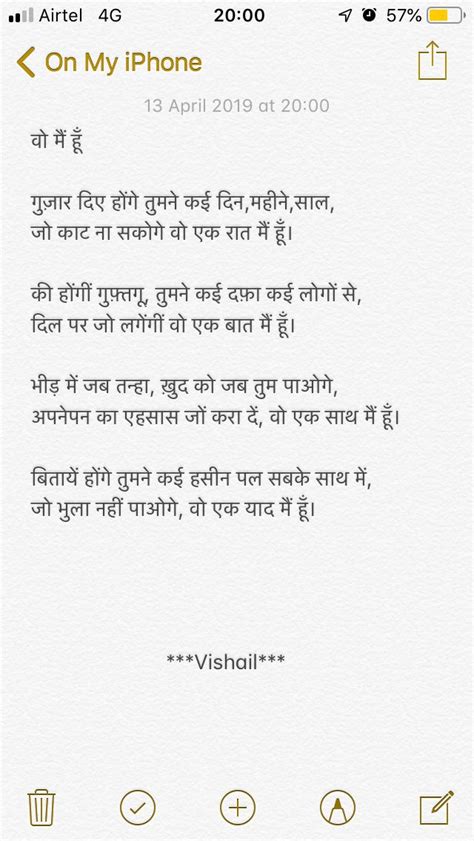 Airtel 4G 20:00 57%
On My iPhone
13 April 2019 at 20:00
वो मैं हूँ
गुज़ार दिए होंगे तुमने कई दिन,महीने,साल,
जो काट ना सकोगे वो एक रात मैं हूँ।
की होंगीं गुफ़्तगू, तुमने कई दफ़ा कई लोगों से,
दिल पर जो लगेंगीं वो एक बात मैं हूँ।
भीड़ में जब तन्हा, ख़ुद को जब तुम पाओगे,
अपनेपन का एहसास जों करा दें, वो एक साथ मैं हूँ।
बितायें होंगे तुमने कई हसीन पल सबके साथ में,
जो भुला नहीं पाओगे, वो एक याद मैं हूँ।
***Vishail***